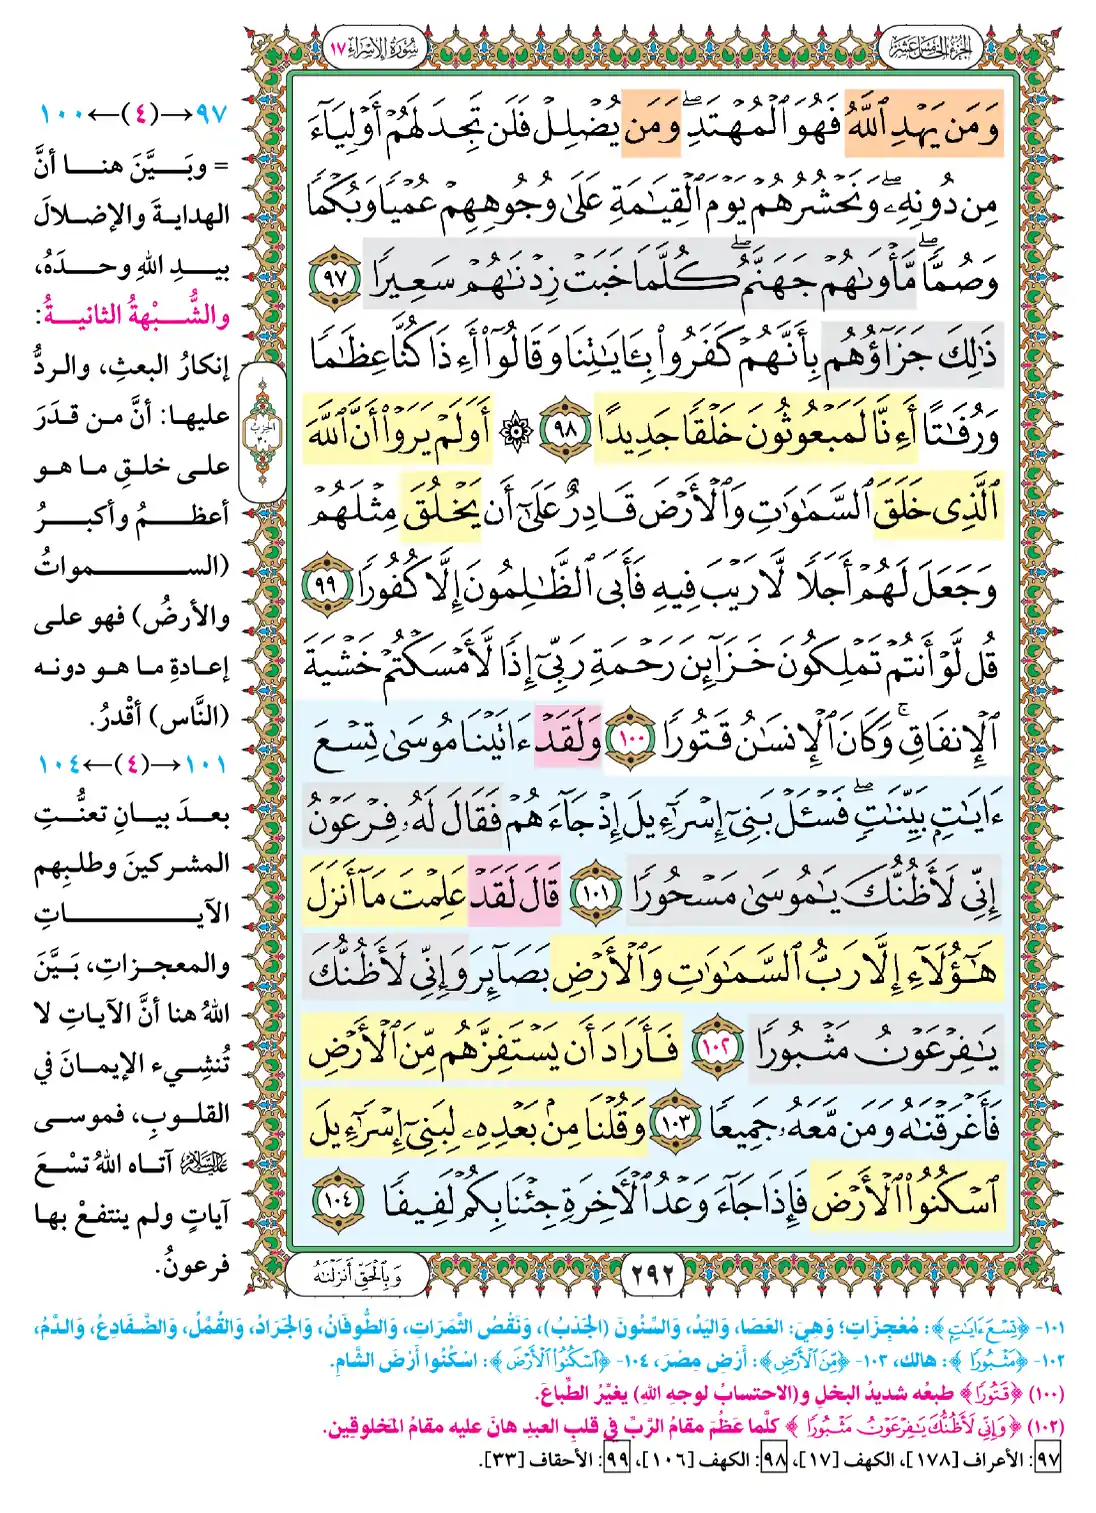 الجزء الخامس عشر
سورة الإسراء ١٧
وَمَن يَهْدِ ٱللَّهُ فَهُوَ ٱلْمُهْتَدِ ۖ وَمَن يُضْلِلْ فَلَن تَجِدَ لَهُمْ أَوْلِيَآءَ
مِن دُونِهِۦ ۖ وَنَحْشُرُهُمْ يَوْمَ ٱلْقِيَٰمَةِ عَلَىٰ وُجُوهِهِمْ عُمْيًا وَبُكْمًا
وَصُمًّا ۖ مَّأْوَىٰهُمْ جَهَنَّمُ ۖ كُلَّمَا خَبَتْ زِدْنَٰهُمْ سَعِيرًا ٩٧
ذَٰلِكَ جَزَآؤُهُم بِأَنَّهُمْ كَفَرُوا۟ بِـَٔايَٰتِنَا وَقَالُوٓا۟ أَءِذَا كُنَّا عِظَٰمًا
وَرُفَٰتًا أَءِنَّا لَمَبْعُوثُونَ خَلْقًا جَدِيدًا ٩٨ ۞ أَوَلَمْ يَرَوْا۟ أَنَّ ٱللَّهَ
ٱلَّذِى خَلَقَ ٱلسَّمَٰوَٰتِ وَٱلْأَرْضَ قَادِرٌ عَلَىٰٓ أَن يَخْلُقَ مِثْلَهُمْ
وَجَعَلَ لَهُمْ أَجَلًا لَّا رَيْبَ فِيهِ فَأَبَى ٱلظَّٰلِمُونَ إِلَّا كُفُورًا ٩٩
قُل لَّوْ أَنتُمْ تَمْلِكُونَ خَزَآئِنَ رَحْمَةِ رَبِّىٓ إِذًا لَّأَمْسَكْتُمْ خَشْيَةَ
ٱلْإِنفَاقِ ۚ وَكَانَ ٱلْإِنسَٰنُ قَتُورًا ١٠٠ وَلَقَدْ ءَاتَيْنَا مُوسَىٰ تِسْعَ
ءَايَٰتٍۭ بَيِّنَٰتٍ ۖ فَسْـَٔلْ بَنِىٓ إِسْرَٰٓءِيلَ إِذْ جَآءَهُمْ فَقَالَ لَهُۥ فِرْعَوْنُ
إِنِّى لَأَظُنُّكَ يَٰمُوسَىٰ مَسْحُورًا ١٠١ قَالَ لَقَدْ عَلِمْتَ مَآ أَنزَلَ
هَٰٓؤُلَآءِ إِلَّا رَبُّ ٱلسَّمَٰوَٰتِ وَٱلْأَرْضِ بَصَآئِرَ وَإِنِّى لَأَظُنُّكَ
يَٰفِرْعَوْنُ مَثْبُورًا ١٠٢ فَأَرَادَ أَن يَسْتَفِزَّهُم مِّنَ ٱلْأَرْضِ
فَأَغْرَقْنَٰهُ وَمَن مَّعَهُۥ جَمِيعًا ١٠٣ وَقُلْنَا مِنۢ بَعْدِهِۦ لِبَنِىٓ إِسْرَٰٓءِيلَ
ٱسْكُنُوا۟ ٱلْأَرْضَ فَإِذَا جَآءَ وَعْدُ ٱلْءَاخِرَةِ جِئْنَا بِكُمْ لَفِيفًا ١٠٤
الحزب
٣٠
٢٩٢
وَبِالْحَقِّ أَنزَلْنَٰهُ
٩٧→(٤)←١٠٠
= وبَيَّنَ هنا أنَّ
الهدايةَ والإضلالَ
بيدِ اللهِ وحدَهُ،
والشُّبْهةُ الثانيةُ:
إنكارُ البعثِ، والردُّ
عليها: أنَّ من قدَرَ
على خلقِ ما هو
أعظمُ وأكبرُ
(السمواتُ
والأرضُ) فهو على
إعادةِ ما هو دونه
(النَّاس) أقْدرُ.
١٠١→(٤)←١٠٤
بعدَ بيانِ تعنُّتِ
المشركينَ وطلبِهم
الآياتِ
والمعجزاتِ، بَيَّنَ
اللهُ هنا أنَّ الآياتِ لا
تُنشِيء الإيمانَ في
القلوبِ، فموسى
عليه السلام آتاه اللهُ تسْعَ
آياتٍ ولم ينتفعْ بها
فرعونُ.
١٠١- ﴿تِسْعَ ءَايَٰتٍ﴾: مُعْجِزَاتٍ؛ وَهِيَ: العَصَا، وَاليَدُ، وَالسِّنُونَ (الجَدْبُ)، وَنَقْصُ الثَّمَرَاتِ، وَالطُّوفَانُ، وَالجَرَادُ، وَالقُمَّلُ، وَالضَّفَادِعُ، وَالدَّمُ،
١٠٢- ﴿مَثْبُورًا﴾: هالك، ١٠٣- ﴿مِّنَ ٱلْأَرْضِ﴾: أَرْضِ مِصْرَ، ١٠٤- ﴿ٱسْكُنُوا۟ ٱلْأَرْضَ﴾: اسْكُنُوا أَرْضَ الشَّامِ.
(١٠٠) ﴿قَتُورًا﴾ طبعُه شديدُ البخلِ و(الاحتسابُ لوجهِ اللهِ) يغيِّرُ الطِّباعَ.
(١٠٢) ﴿وَإِنِّى لَأَظُنُّكَ يَٰفِرْعَوْنُ مَثْبُورًا﴾ كلَّما عَظُمَ مقامُ الرَّبِّ في قلبِ العبدِ هانَ عليه مقامُ المَخلوقين.
٩٧: الأعراف [١٧٨]، الكهف [١٧]، ٩٨: الكهف [١٠٦]، ٩٩: الأحقاف [٣٣].